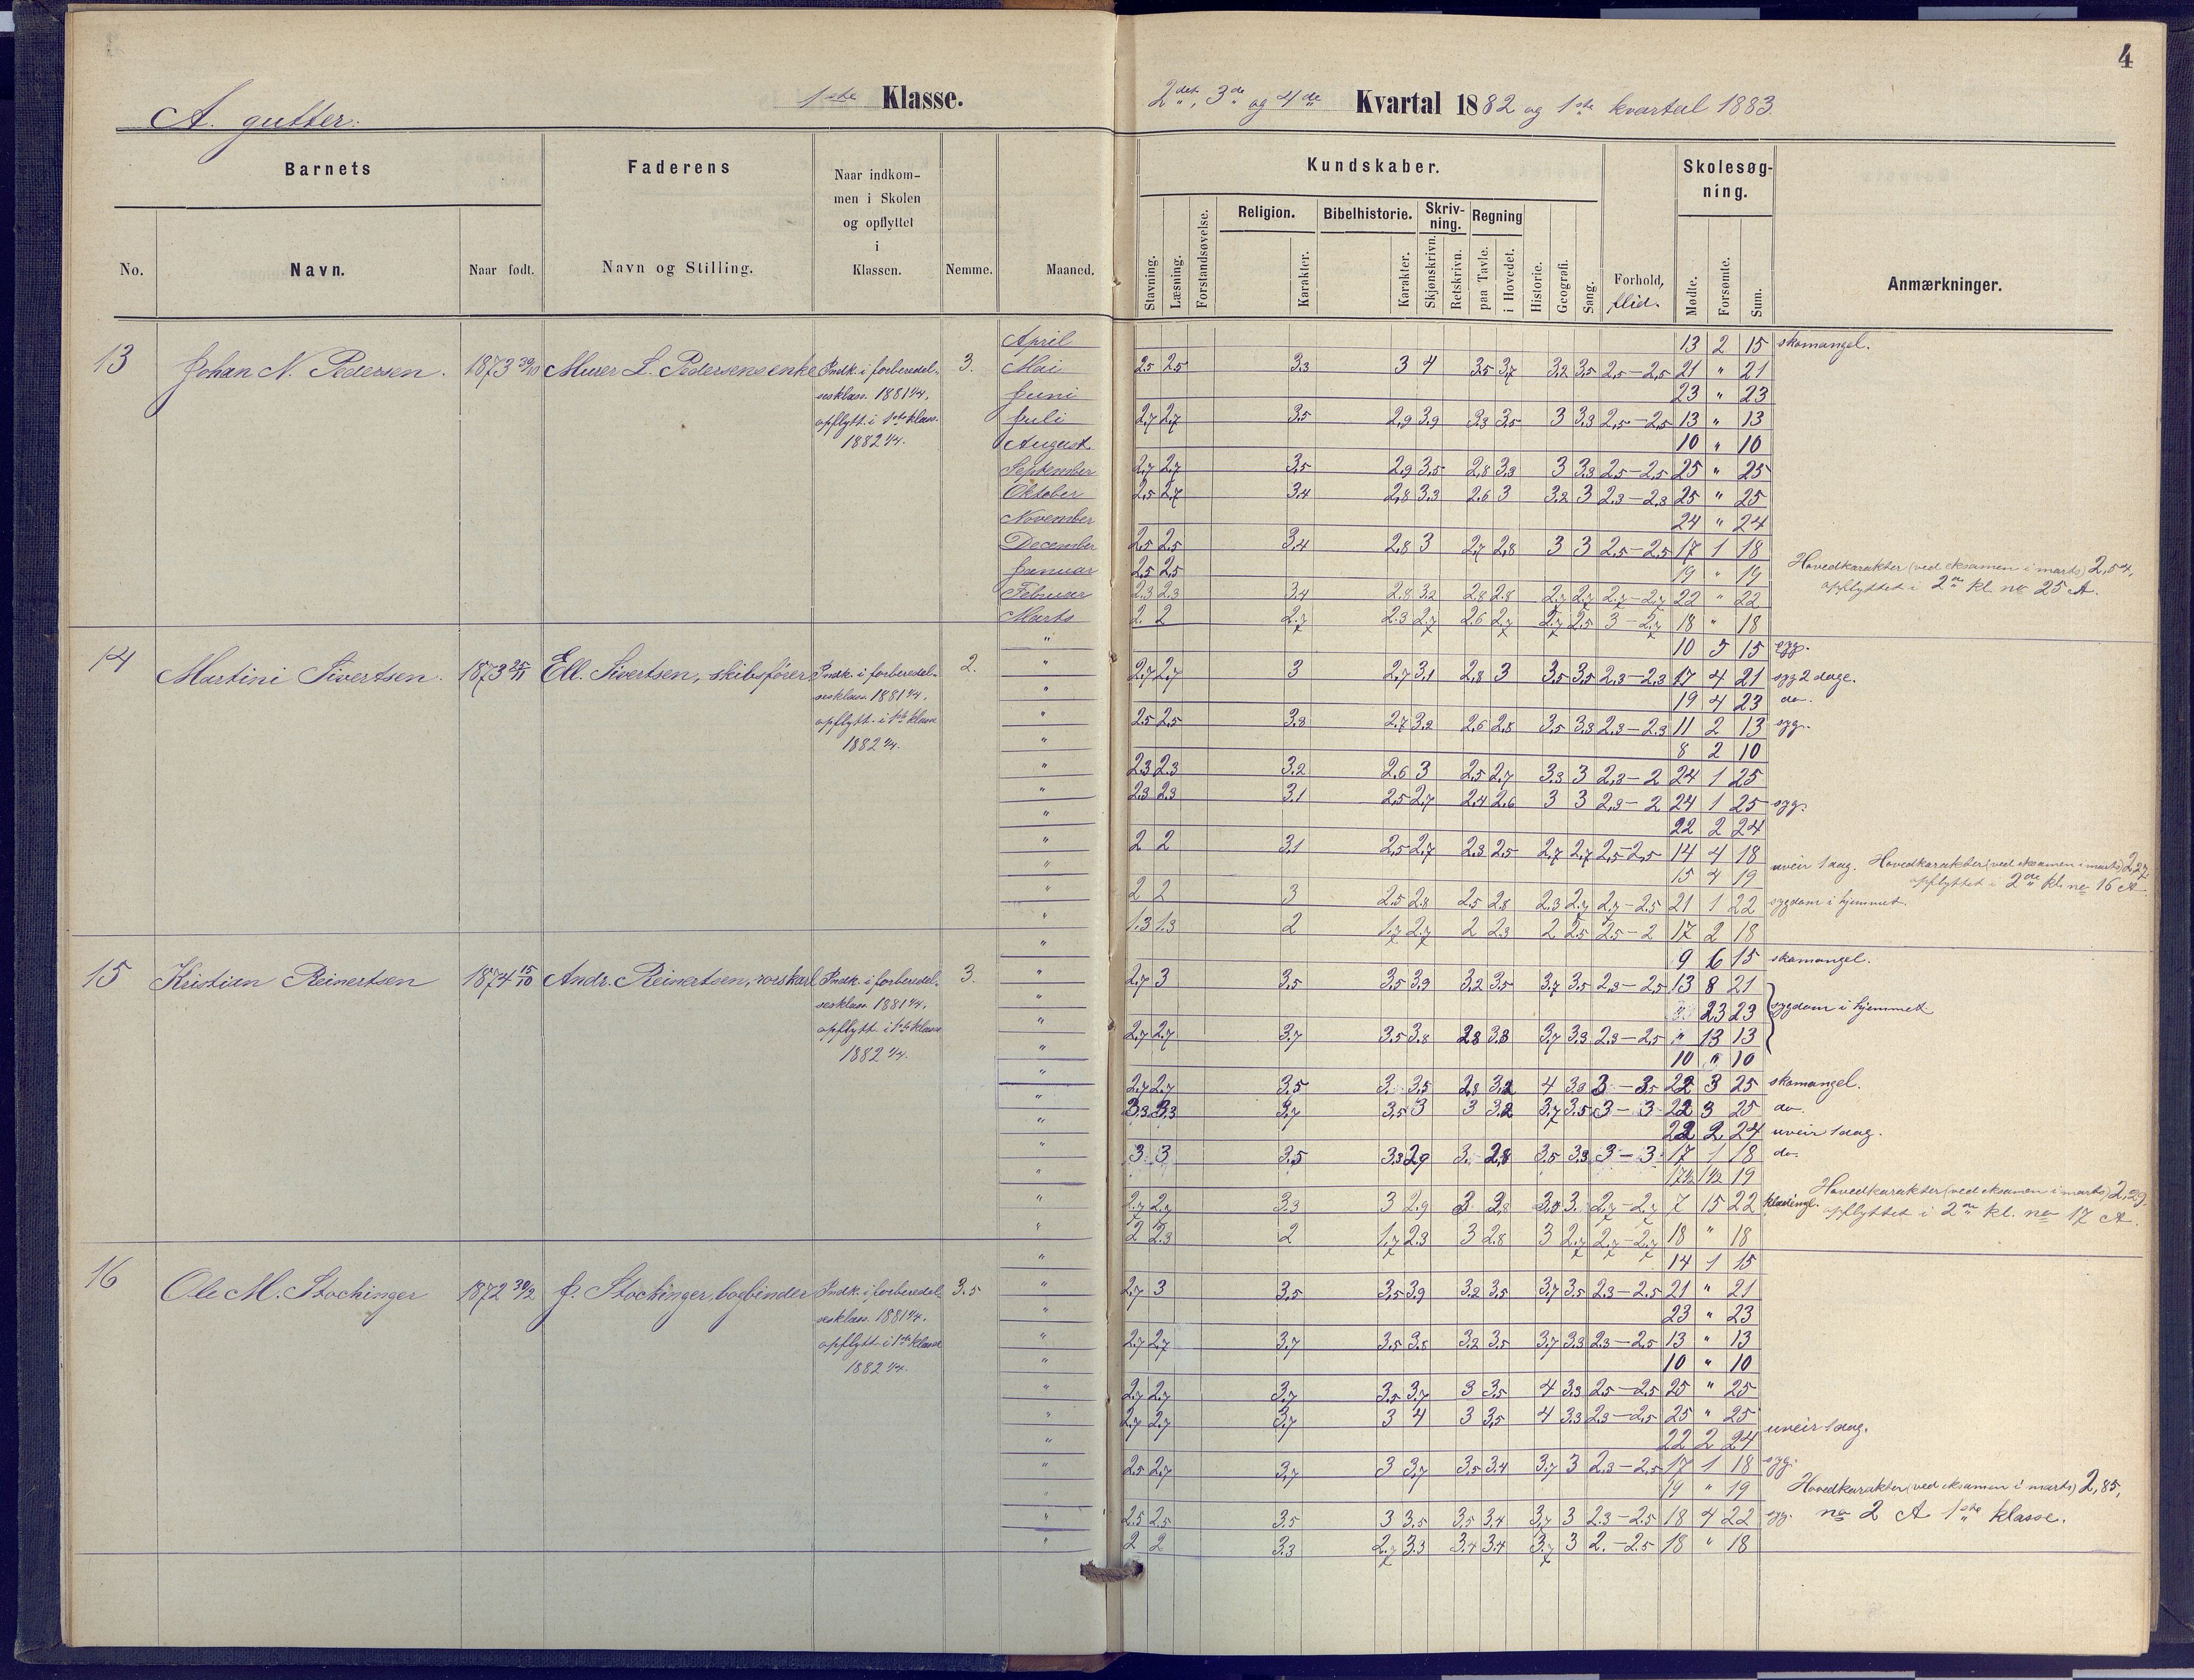 4
A. gutter:
1ste Klasse.
2det, 3de og 4de Kvartal 1882 og 1ste kvartal 1883.
Barnets
Faderens
Naar indkom-
men i Skolen
og opflyttet
i
Klassen.
No.
Navn.
Naar født.
Navn og Stilling.
Nemme.
Maaned.
Kundskaber.
Skolesøg-
ning.
Religion.
Bibelhistorie.
Skriv-
ning.
Regning
Stavning.
Læsning.
Forstandsøvelse.
Karakter.
Karakter.
Skjønskrivn.
Retskrivn.
paa Tavle.
i Hovedet.
Historie.
Geografi.
Sang.
Forhold,
flid.
Mødte.
Forsømte.
Sum.
Anmærkninger.
13 Johan N. Pedersen. 1873 30/10 Murer L. Pedersens enke Indk. i forberedel-
sesklass. 1881 1/4,
opflytt. i 1ste klass.
1882 1/4.
3.
April 13 2 15 skomangel.
Mai 2,5 2,5 3,3 3 4 3,5 3,7 3,2 3,5 2,5-2,5 21 " 21
Juni 23 " 23
Juli 2,7 2,7 3,5 2,9 3,9 3,3 3,5 3 3,3 2,5-2,5 13 " 13
August 10 " 10
September 2,7 2,7 3,5 2,9 3,5 2,8 3,3 3 3,3 2,5-2,5 25 " 25
Oktober 2,5 2,7 3,4 2,8 3,3 2,6 3 3,2 3 2,3-2,3 25 " 25
November 24 " 24
December 2,5 2,5 3,4 2,8 3 2,7 2,8 3 3 2,5-2,5 17 1 18
Januar 2,5 2,5 19 " 19 Hovedkarakter (ved eksamen i marts) 2,54,
Februar 2,3 2,3 3,4 2,8 3,2 2,8 2,8 2,7 2,7 2,7-2,7 22 " 22 opflyttet i 2de kl. no 25 A.
Marts 2. 2 2,7 2,3 2,7 2,6 2,7 2,7 2,5 3-2,7 18 " 18
14 Martini Sivertsen. 1873 25/11 Ell. Sivertsen, skibsfører Indk. i forberedel-
sesklass. 1881 1/4,
opflytt. i 1ste klasse
1882 1/4.
2.
" 10 5 15 syg.
" 2,7 2,7 3 2,7 3,1 2,8 3 3,5 3,5 2,3-2,3 17 4 21 syg 2 dage.
" 19 4 23 do.
" 2,5 2,5 3,3 2,7 3,2 2,6 2,8 3,5 3,3 2,3-2,3 11 2 13 syg.
" 8 2 10
" 2,3 2,3 3,2 2,6 3 2,5 2,7 3,3 3 2,3-2 24 1 25
" 2,3 2,3 3,1 2,5 2,7 2,4 2,6 3 3 2,3-2 24 1 25 syg.
" 22 2 24
" 2 2 3,1 2,5 2,7 2,3 2,5 2,7 2,7 2,5-2,5 14 4 18
" 15 4 19 uveir 1 dag. Hovedkarakter (ved eksamen i marts) 2,27,
opflyttet i 2de kl. no 16 A.
" 2 2 3 2,5 2,8 2,5 2,8 2,3 2,7 2,7-2,5 21 1 22 sygdom i hjemmet.
" 1,3 1,3 2 1,7 2,7 2 2,3 2 2,5 2,5-2 17 2 18
15 Kristian Reinertsen 1874 15/10 Andr. Reinertsen, Indk. i forberedel-
sesklass. 1881 1/4,
opflytt. i 1ste klasse
1882 1/4.
3.
" 9 6 15 skomangel.
" 2,7 3 3,5 3,5 3,9 3,2 3,5 3,7 3,5 2,3-2,5 13 8 21
" 23 23 sygdom i hjemmet
" 2,7 2,7 3,7 3,5 3,8 2,8 3,3 3,7 3,3 2,3-2,5 " 13 13
" 10 " 10
" 2,7 2,7 3,5 3. 3,5 2,8 3,2 4 3,3 3-3,5 22 3 25 skomangel.
" 3,3 3,3 3,7 3,5 3 3 3,2 3,7 3,5 3-3 22 3 25 do.
" 22 2 24 uveir 1 dag.
" 3. 3 3,5 3,3 2,9 3. 2,8 3,5 3,3 3-3 17 1 18 do.
" 17½ 1½ 19
" 2,7 2,7 3,3 3 2,9 3 2,8 3,3 3. 2,7-2,7 7 15 22 Hovedkarakter (ved eksamen i marts) 2,29,
opflyttet i 2de kl. no 17 A.
" 2 2,3 2 1,7 2,3 3 2,8 3 2,7 2,7-2,7 18 " 18
16 Ole M. Stochinger 1872 30/2 J. Stochinger, bogbinder Indk. i forberedel-
sesklass. 1881 1/4,
opflytt. i 1ste klasse
1882 1/4.
3.5
" 14 1 15
" 2,7 3 3,5 3,5 3,9 3,2 3,5 3,7 3,5 2,3-2,5 21 " 21
" 23 " 23
" 2,7 2,7 3,7 3,5 3,8 3,2 3,5 3,7 3,3 2,3-2,5 13 " 13
" 10 " 10
" 2,7 2,7 3,7 3,5 3,7 3 3,5 4 3,3 2,5-2,5 25 " 25
" 2,7 2,7 3,7 3 4 3 3,5 4 3,3 2,3-2,5 25 " 25
" 22 2 24 uveir 1 dag.
" 2,5 2,7 3,7 3 3,7 3,5 3,4 3,7 3 2,3-2,5 17 1 18 syg.
" 19 " 19 Hovedkarakter (ved eksamen i marts) 2,85,
" 2,5 2,5 3,5 3 3,5 3,5 3,4 3,7 3 2,3-2,5 18 4 22 syg. no 2 A 1ste klasse.
" 2 2 3,3 2,7 3,3 3,4 3,4 3,7 3 2.-2,5 18 " 18